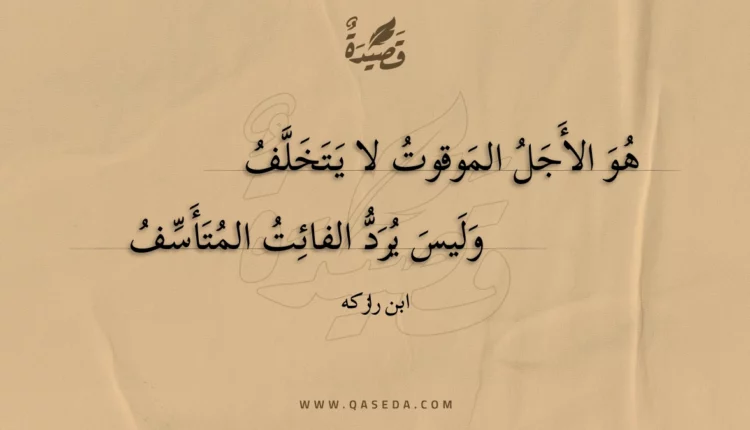 قَصِيدَةٌ
هُوَ الأَجَلُ المَوقوتُ لا يَتَخَلَّفُ
وَلَيسَ يُرَدُّ الفائِتُ المُتَأَسِّفُ
ابن رازكه
WWW.QASEDA.COM